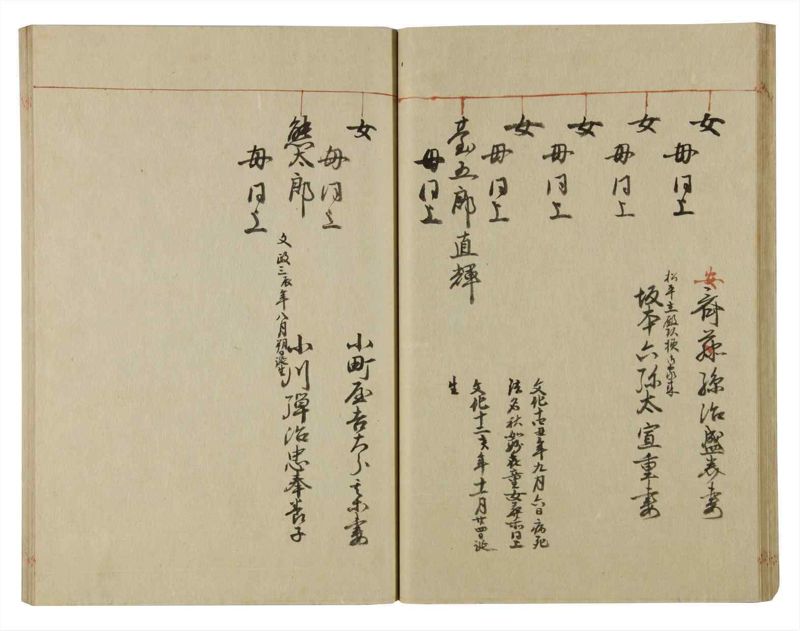 女
母同上
安齋藤孫治盛表妻
女
母同上
松平主殿頭様御家来
坂本六弥太宣重妻
女
母同上
女
母同上
文化十四丑年九月六日病死
法名秋 童女 所同上
臺五郎直輝
母同上
文化十二亥年十一月廿四日誕
生
女
母同上
小町屋吉 妻
熊太郎
母同上
文政三辰年八月朔日誕生
小川弾治忠奉養子